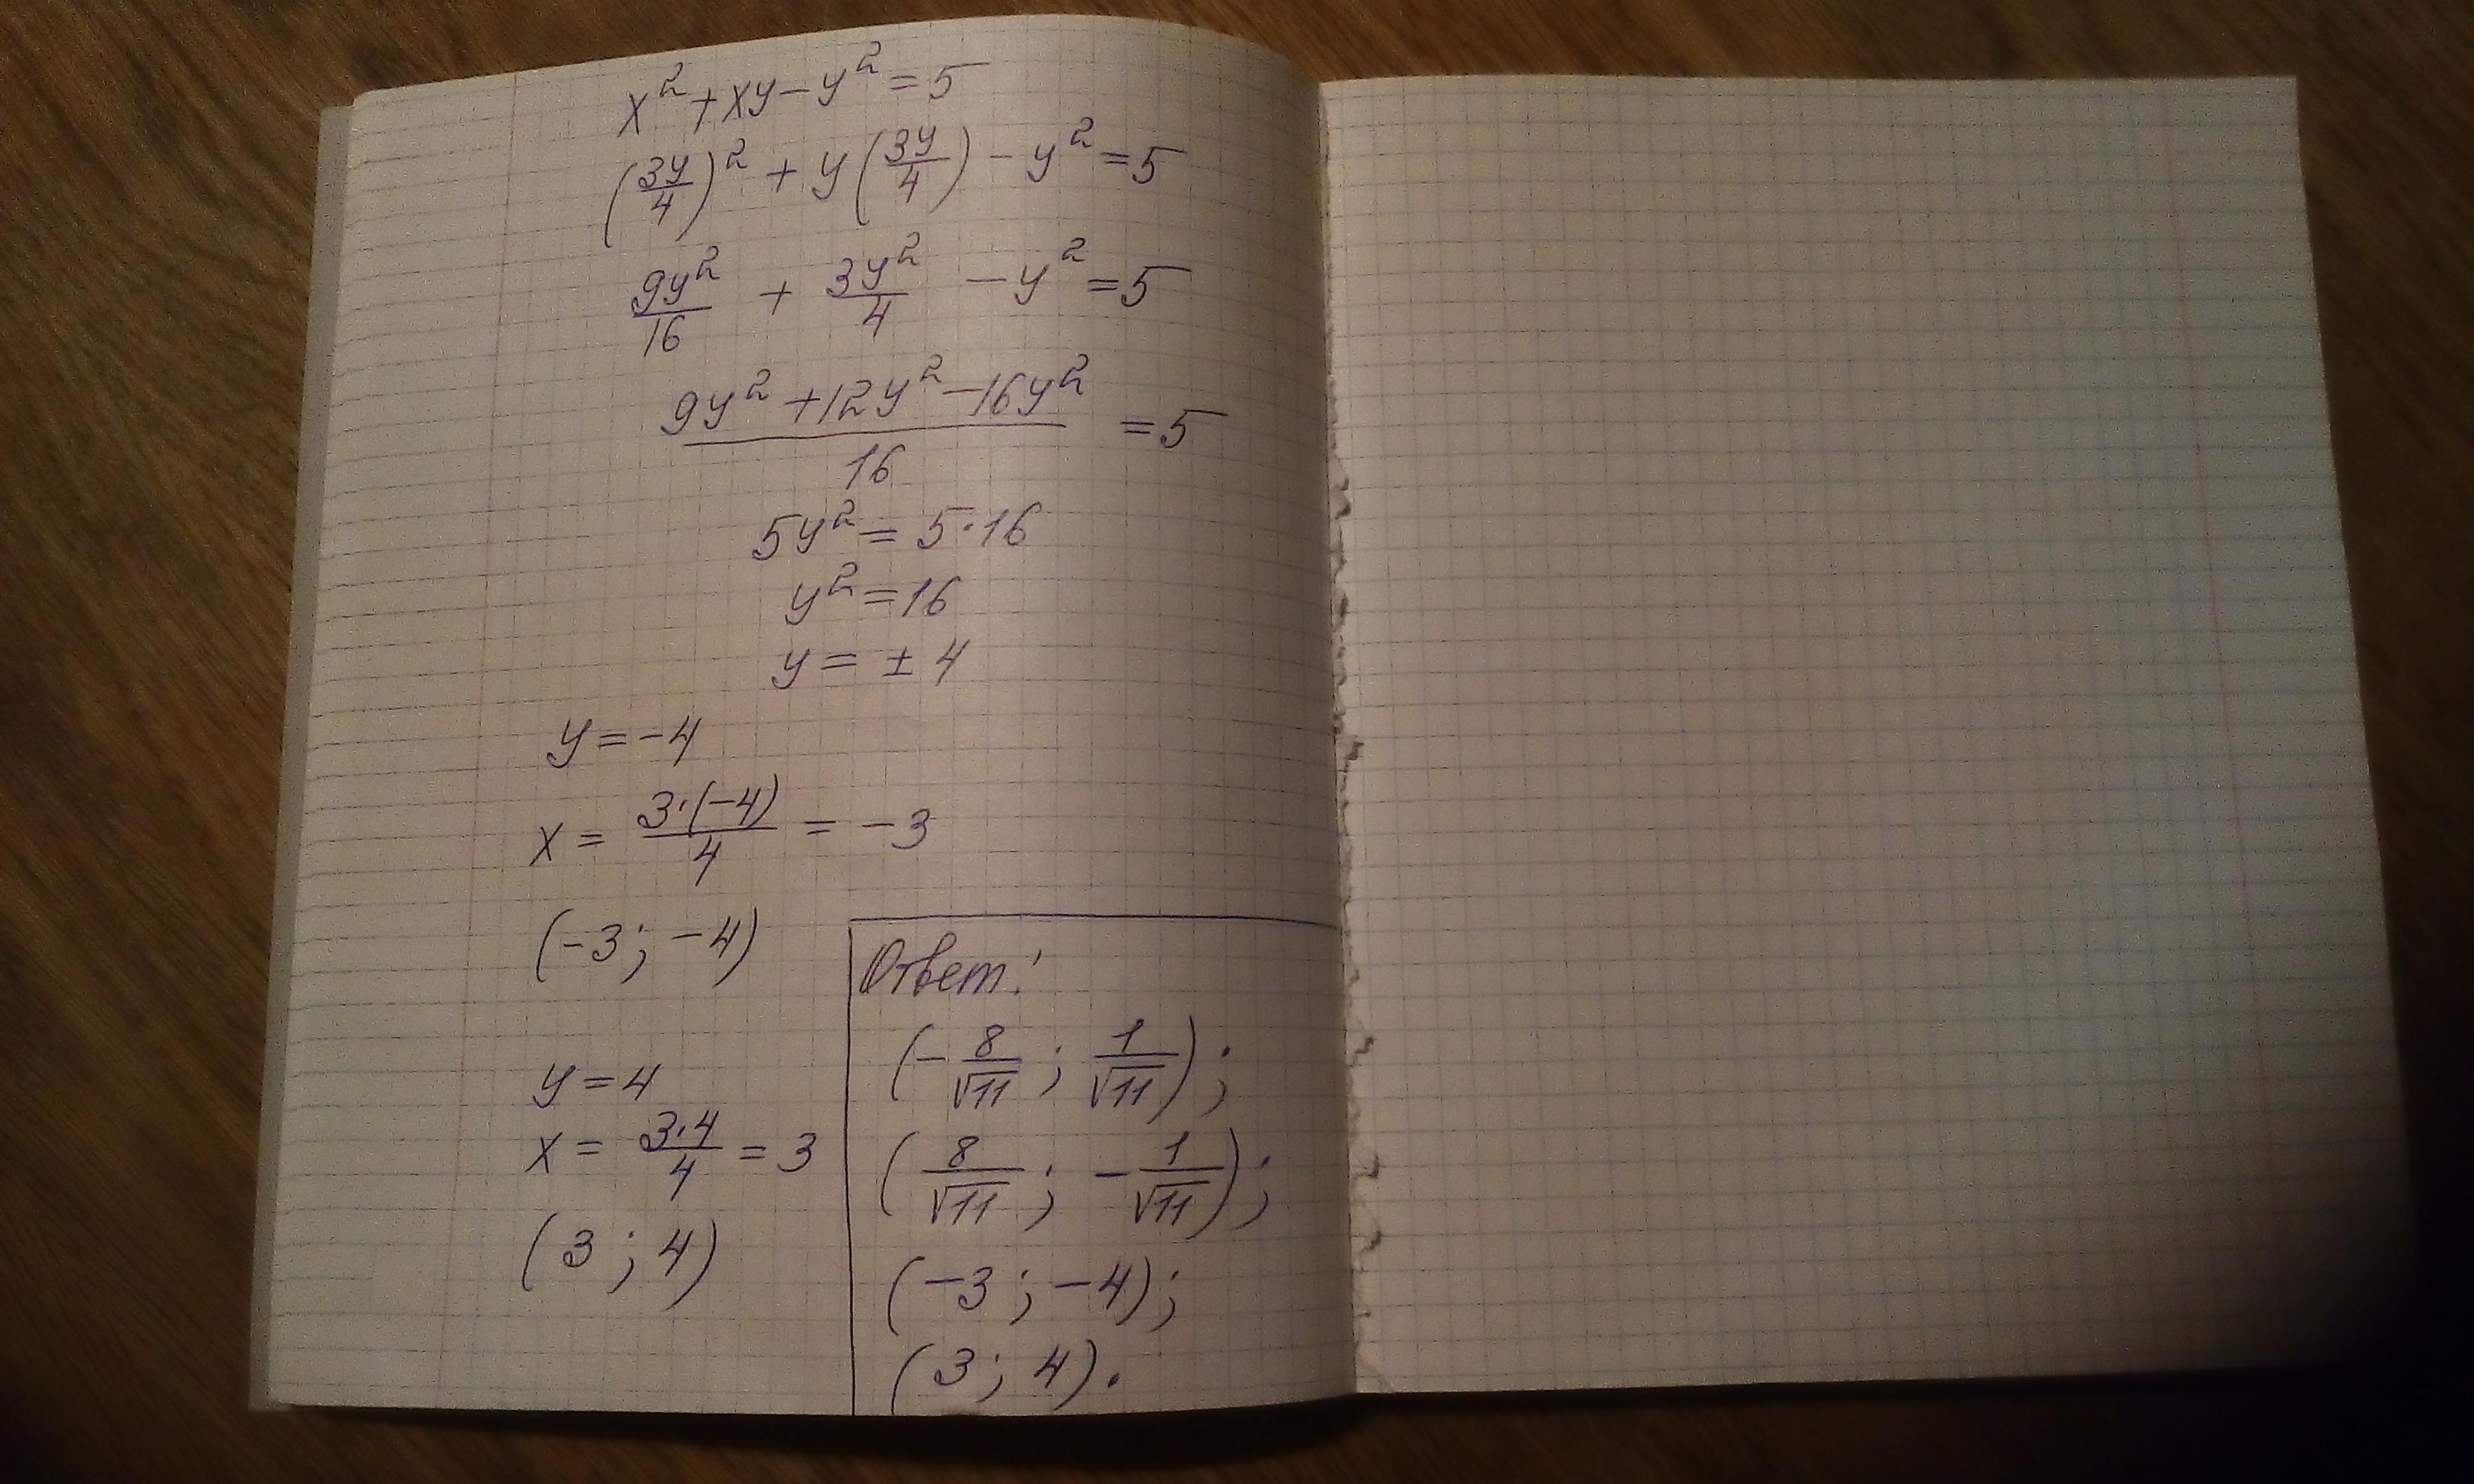 x² + xy - y² = 5
(3y/4)² + y(3y/4) - y² = 5
9y²/16 + 3y²/4 - y² = 5
(9y² + 12y² - 16y²)/16 = 5
5y² = 5·16
y² = 16
y = ± 4
y = -4
x = 3·(-4)/4 = -3
(-3; -4)
y = 4
x = 3·4/4 = 3
(3; 4)
Ответ:
(-8/√11; 1/√11);
(8/√11; -1/√11);
(-3; -4);
(3; 4).